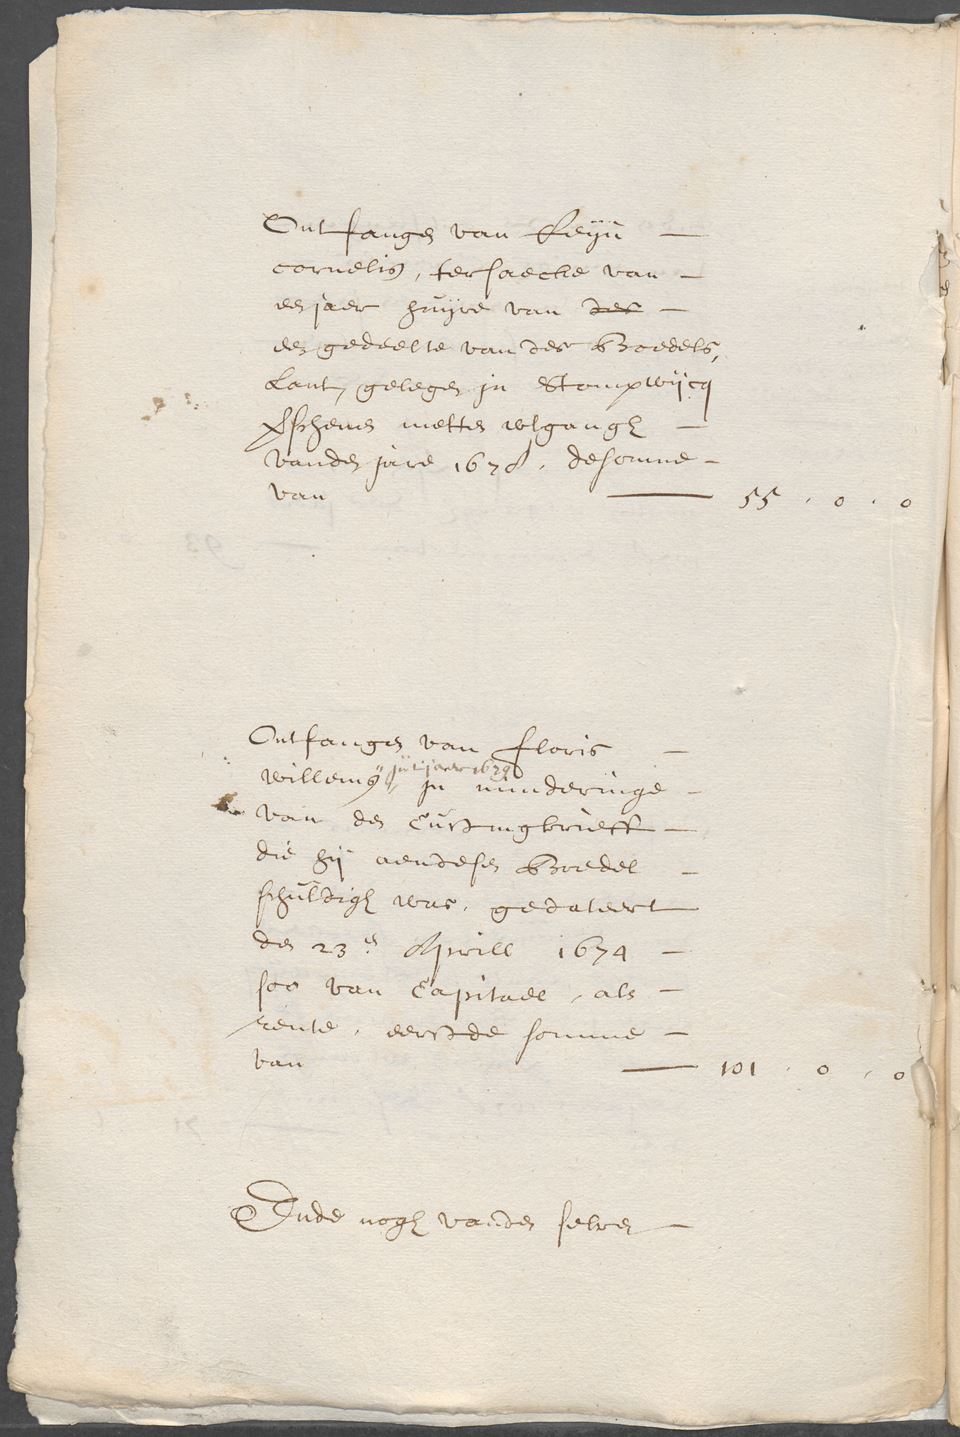 Ontfangen van Leyn —
cornelis, ter saecke van —
een jaer huijre van des —
een gedeelte van des Boedels,
Lant, gelegen in Stompwijcq
verschenen metten wtgangh —
vanden jare 1678. de somme —
van — 55 . 0 . 0
Ontfangen van floris —
in't jaer 1679
willems in minderinge —
van den Custingbrieff —
die hij aen desen Boedel —
schuldigh was, gedateert
den 23en Aprill 1674 —
soo van Capitael, als —
rente, eerst de somme —
van — 101 . 0 . 0
Ende nogh vanden selven —